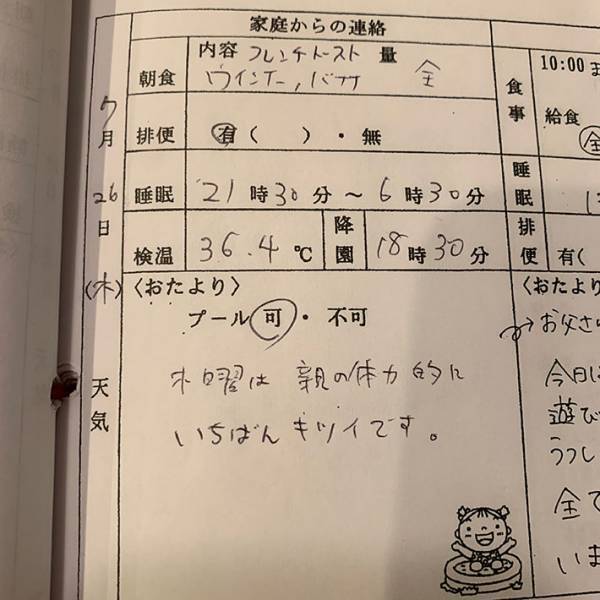 家庭からの連絡
7月26日(木)
天気
朝食 内容 フレンチトースト 量
ウインナー, バナナ 全
排便 有( )・無
睡眠 21時30分〜6時30分
検温 36.4℃ 降園 18時30分
〈おたより〉
プール 可・不可
木曜は 親の体力的に
いちばんキツイです。
食事 10:00
給食
全
睡眠
排便 有(
〈おたより
お父さん
今日は
遊び
うつし
全て
いま